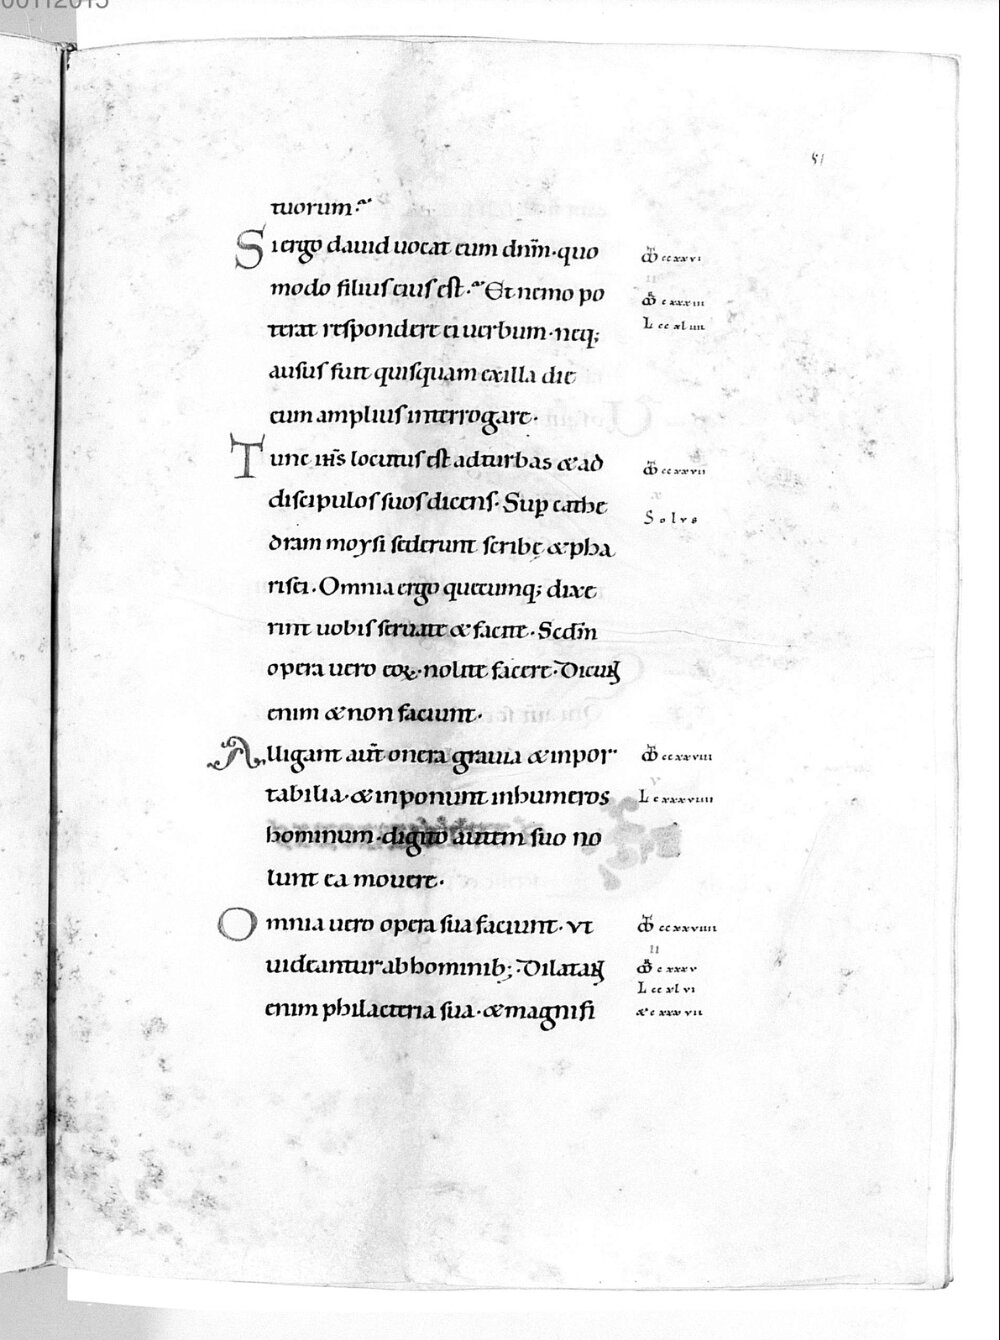 00112015
51
tuorum.
Si ergo dauid uocat eum dnm̄. quo
modo filius eius est. Et nemo po
terat respondere ei uerbum. neq;
ausus fuit quisquam ex illa die
eum amplius interrogare.
Tunc ihs̄ locutus est ad turbas & ad
discipulos suos dicens. Sup cathe
dram moysi sederunt scribę & pha
risei. Omnia ergo quecumq; dixe
rint uobis seruate & facite. Scdm̄
opera uero eoꝝ. nolite facere. Dicunt
enim & non faciunt.
Alligant aut̄ onera grauia & inpor
tabilia. & inponunt in humeros
hominum. digito autem suo no
lunt ea mouere.
Omnia uero opera sua faciunt. vt
uideantur ab hominib; Dilatant
enim philacteria sua. & magnifi
ccxxvi
cxxxiii
L ccxliiii
ccxxvii
x
Solvs
ccxxviii
v
L cxxxviiii
ccxxviiii
ii
cxxxv
L ccxlvi
& cxxxvii